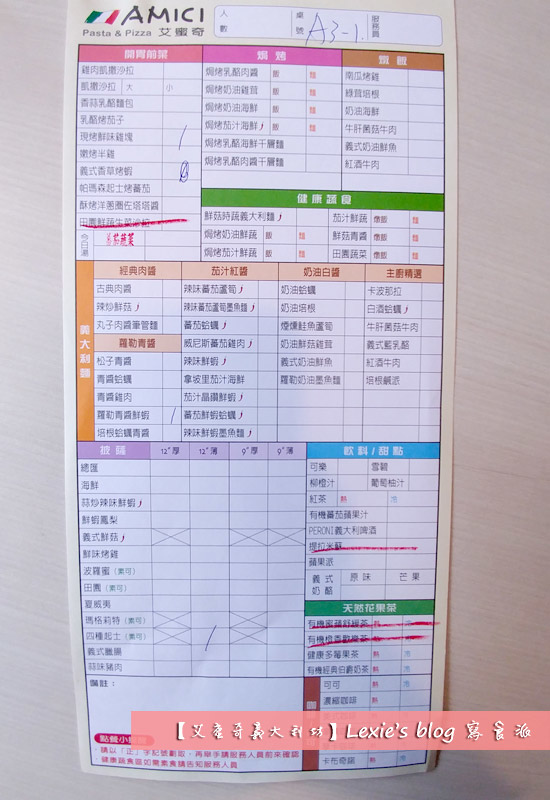 AMICI
Pasta & Pizza 艾蜜奇
人數
桌號 A3-1
服務員
開胃前菜
雞肉凱撒沙拉
凱撒沙拉 大 小
香蒜乳酪麵包
乳酪烤茄子
現烤鮮味雞塊
嫩烤半雞
義式香草烤蝦
帕瑪森起士烤蕃茄
酥烤洋蔥圈佐塔塔醬
田園鮮蔬生菜沙拉
今日湯 蕃茄蔬菜
焗烤
焗烤乳酪肉醬 飯 麵
焗烤奶油雞茸 飯 麵
焗烤奶油海鮮 飯 麵
焗烤茄汁海鮮 飯 麵
焗烤乳酪海鮮千層麵
焗烤乳酪肉醬千層麵
燉飯
南瓜烤雞
綠茸培根
奶油海鮮
牛肝菌菇牛肉
義式奶油鮮魚
紅酒牛肉
健康蔬食
鮮菇時蔬義大利麵
焗烤奶油鮮蔬 飯 麵
焗烤茄汁鮮蔬 飯 麵
茄汁鮮蔬 燉飯 麵
鮮菇青醬 燉飯 麵
田園蔬菜 燉飯 麵
義大利麵
經典肉醬
古典肉醬
辣炒鮮菇
丸子肉醬筆管麵
蘿勒青醬
松子青醬
青醬蛤蠣
青醬雞肉
蘿勒青醬鮮蝦
培根蛤蠣青醬
茄汁紅醬
辣味蕃茄蘆筍
辣味蕃茄蘆筍墨魚麵
蕃茄蛤蠣
威尼斯蕃茄雞肉
辣味鮮蝦
拿坡里茄汁海鮮
茄汁晶鑽鮮蝦
蕃茄鮮蝦蛤蠣
辣味鮮蝦墨魚麵
奶油白醬
奶油蛤蠣
奶油培根
煙燻鮭魚蘆筍
奶油鮮菇雞茸
義式奶油鮮魚
蘿勒奶油墨魚麵
主廚精選
卡波那拉
白酒蛤蠣
牛肝菌菇牛肉
義式藍乳酪
紅酒牛肉
培根鹹派
披薩 12"厚 12"薄 9"厚 9"薄
總匯
海鮮
蒜炒辣味鮮蝦
鮮蝦鳳梨
義式鮮菇
鮮味烤雞
波蘿蜜(素可)
田園(素可)
夏威夷
瑪格莉特(素可)
四種起士(素可)
義式臘腸
蒜味豬肉
備註：
飲料/甜點
可樂 雪碧
柳橙汁 葡萄柚汁
紅茶 熱 冷
有機蕃茄蘋果汁
PERONI義大利啤酒
提拉米蘇
蘋果派
義式奶酪 原味 芒果
天然花果茶
有機蜜蘋舒緩茶 熱
有機橙香歡樂茶 熱
健康多莓果茶 熱 冷
有機經典伯爵奶茶 熱 冷
咖
可可 熱 冷
濃縮咖啡 熱
卡布奇諾 熱 冷
點餐小
請以「正」字記號劃取，再舉手請服務人員前來確認
健康蔬食區如需素食請告知服務人員
【艾蜜奇義大利坊】Lexie's blog 寫食派